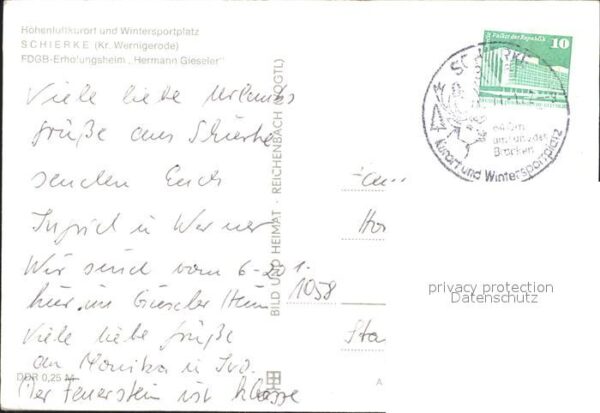 Höhenluftkurort und Wintersportplatz
SCHIERKE (Kr. Wernigerode)
FDGB-Erholungsheim „Hermann Gieseler"
Viele liebe Urlaubs
grüße aus Schierke
senden Euch
Ingrid u Werner
Wir sind vom 6-20.1.
hier im Gieseler Heim
Viele liebe Grüße
an Monika u
Der Feuerstein ist klasse
DDR 0,25 M
BILD UND HEIMAT · REICHENBACH (VOGTL)
1058
A
Palast der Republik
10
SCHIERKE
640m
am Fuß des
Brocken
Kurort und Wintersportplatz
Fam
Sta
privacy protection
Datenschutz